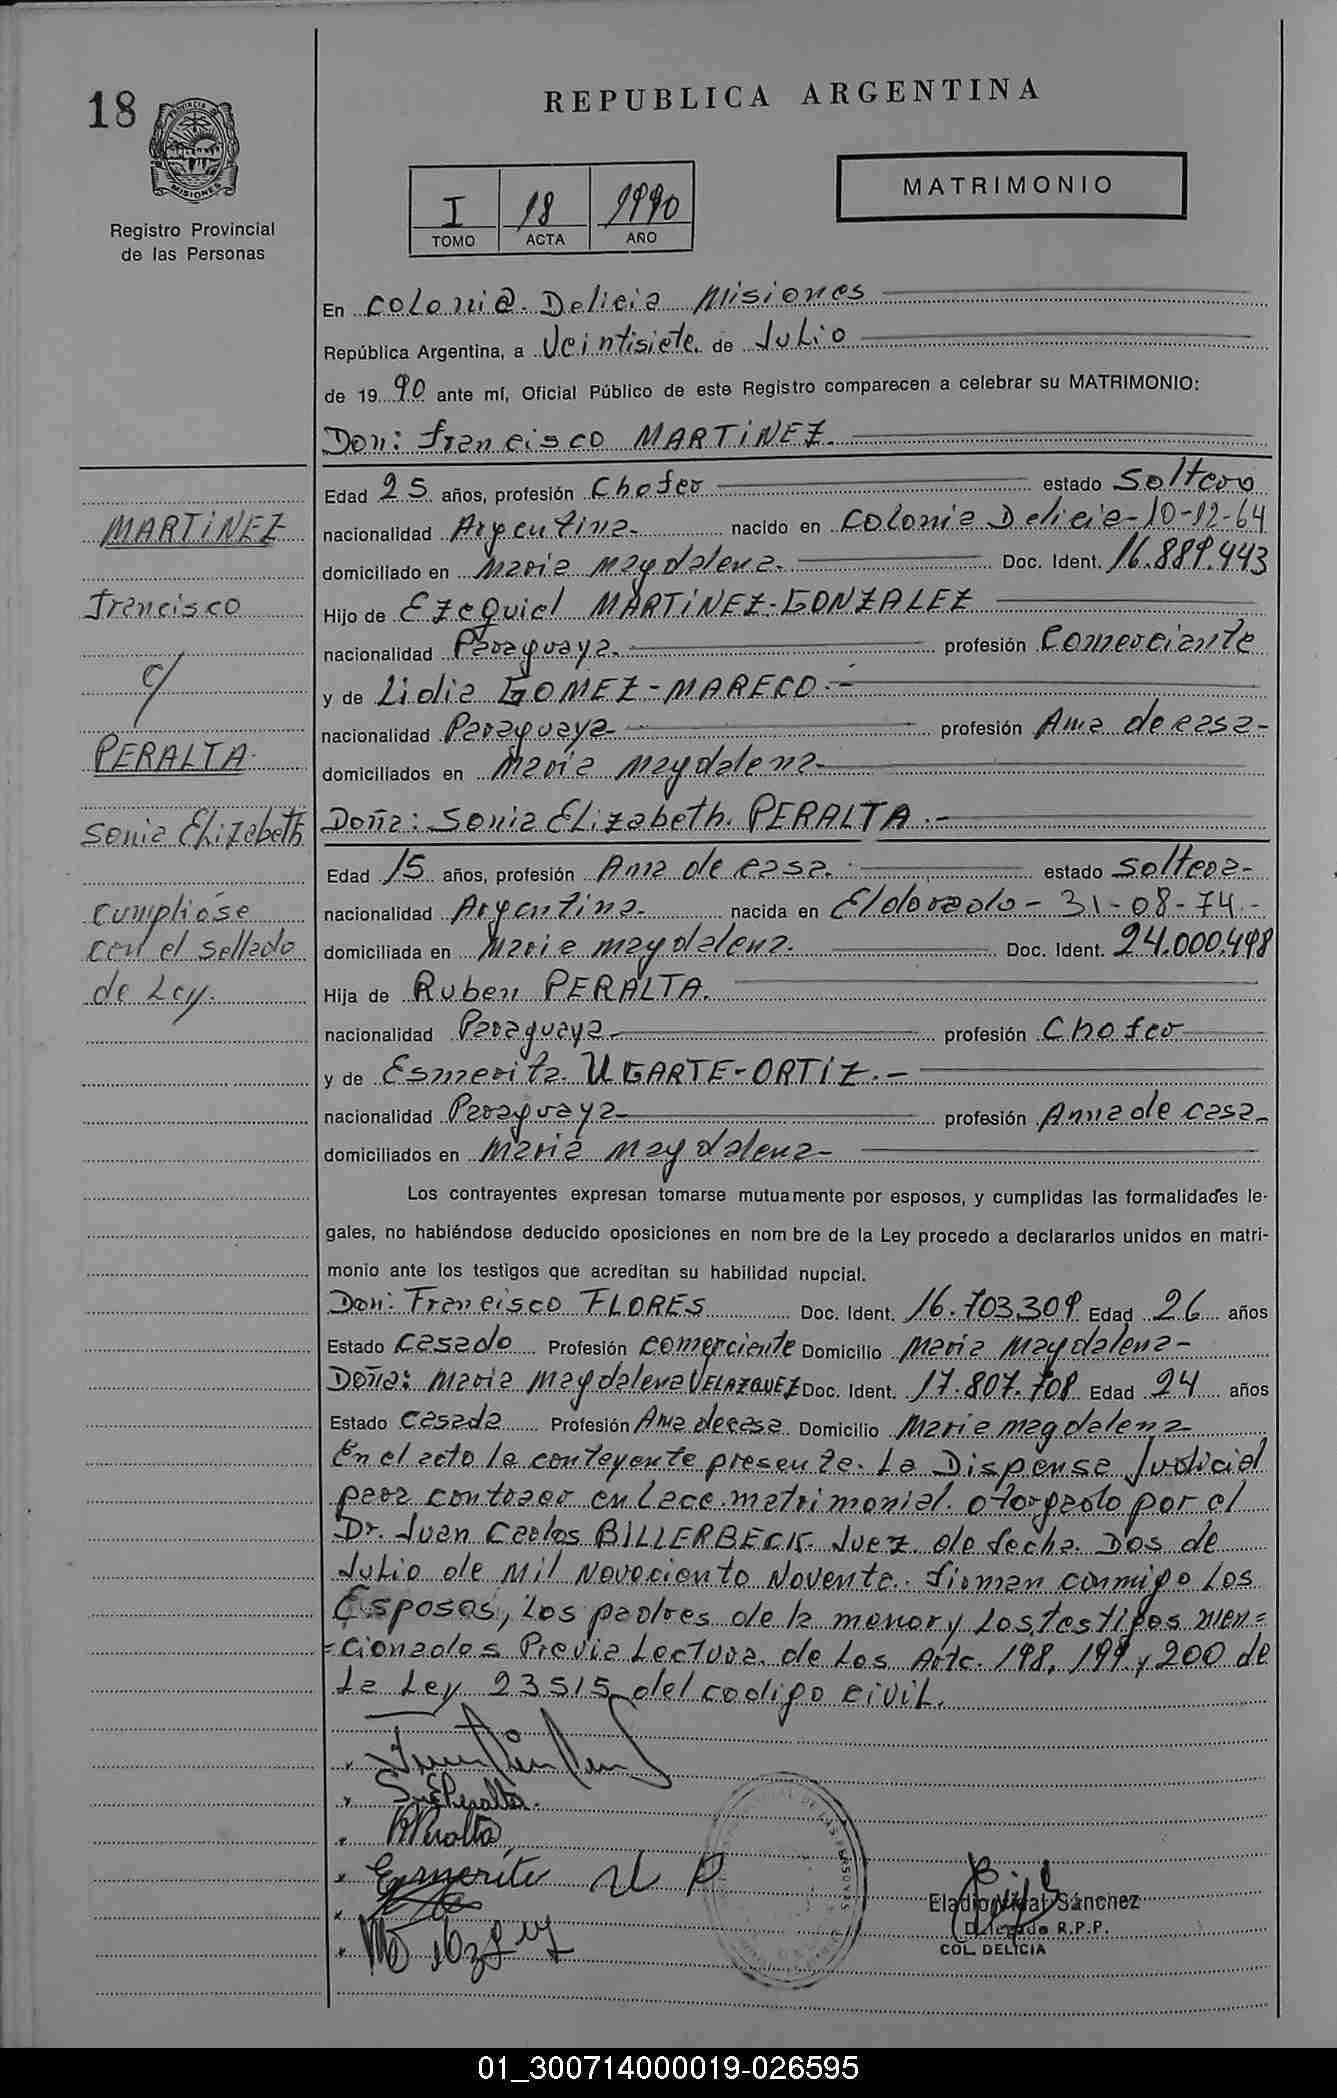 18
PROVINCIA DE
MISIONES
Registro Provincial
de las Personas
REPUBLICA ARGENTINA
I 18 1990
TOMO ACTA AÑO
MATRIMONIO
En Colonia Delicia Misiones
República Argentina, a Veintisiete de Julio
de 19 90 ante mí, Oficial Público de este Registro comparecen a celebrar su MATRIMONIO:
Don: Francisco MARTINEZ.
Edad 25 años, profesión Chofer estado Soltero
nacionalidad Argentina nacido en Colonia Delicia-10-12-64
domiciliado en Maria Magdalena. Doc. Ident. 16.889.443
Hijo de Ezequiel MARTINEZ-GONZALEZ
nacionalidad Paraguaya. profesión Comerciante
y de Lidia GOMEZ-MARECO.-
nacionalidad Paraguaya profesión Ama de casa-
domiciliados en Maria Magdalena-
Doña: Sonia Elizabeth. PERALTA.-
Edad 15 años, profesión Ama de casa. estado Soltera-
nacionalidad Argentina. nacida en Eldorado- 31-08-74.-
domiciliada en Maria Magdalena. Doc. Ident. 24.000.498
Hija de Ruben PERALTA.
nacionalidad Paraguaya profesión Chofer
y de Esmerita. UGARTE-ORTIZ.-
nacionalidad Paraguaya profesión Ama de casa-
domiciliados en Maria Magdalena-
Los contrayentes expresan tomarse mutuamente por esposos, y cumplidas las formalidades le-
gales, no habiéndose deducido oposiciones en nom bre de la Ley procedo a declararlos unidos en matri-
monio ante los testigos que acreditan su habilidad nupcial.
Don: Francisco FLORES Doc. Ident. 16.703.309 Edad 26 años
Estado Casado Profesión Comerciante Domicilio Maria Magdalena-
Doña: Maria Magdalena VELAZQUEZ Doc. Ident. 17.807.708 Edad 24 años
Estado Casada Profesión Ama de casa Domicilio Maria Magdalena
En el acto la conteyente presente. La Dispensa Judicial
para contraer enlace matrimonial. otorgado por el
Dr. Juan Carlos BILLERBECK. Juez. de fecha. Dos de
Julio de Mil Novociento Noventa. firman conmigo Los
Esposos, los padres de la menor y Los testigos men=
=cionados Previa Lectura de Los Artc. 198, 199 y 200 de
La Ley 23515 del codigo civil.
MARTINEZ
Francisco
c/
PERALTA
Sonia Elizabeth
Cumplióse
con el sellado
de Ley.
S E Peralta.
R Peralta
Esmerita U P
Eladio Vidal Sánchez
Delegado R.P.P.
COL. DELICIA
01_300714000019-026595